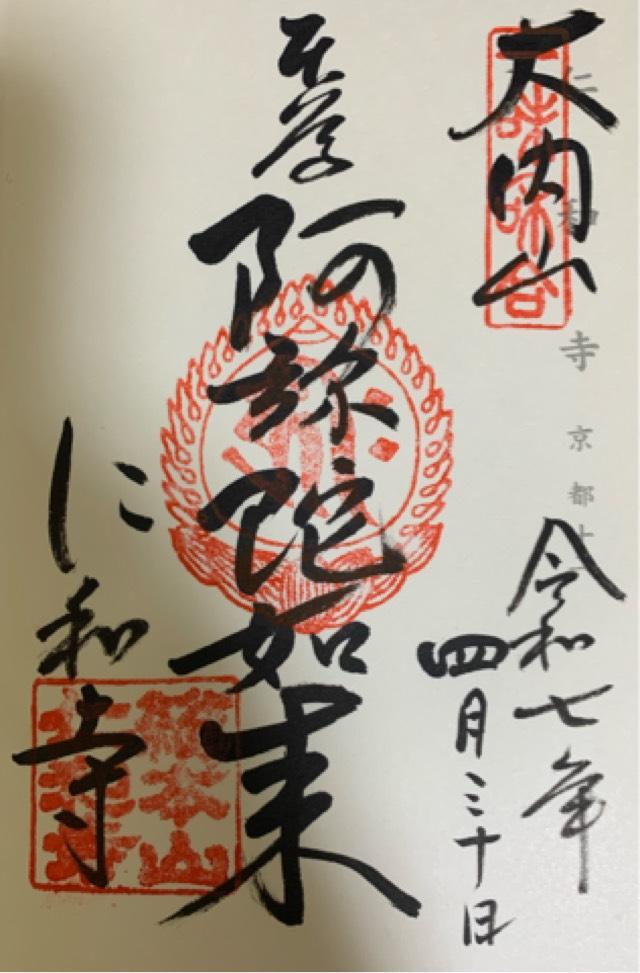 大内山
仁和寺 京都
令和七年
四月三十日
本尊
阿弥陀如来
仁和寺